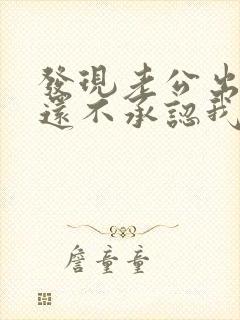 發現老公出
還不承認我
詹童童